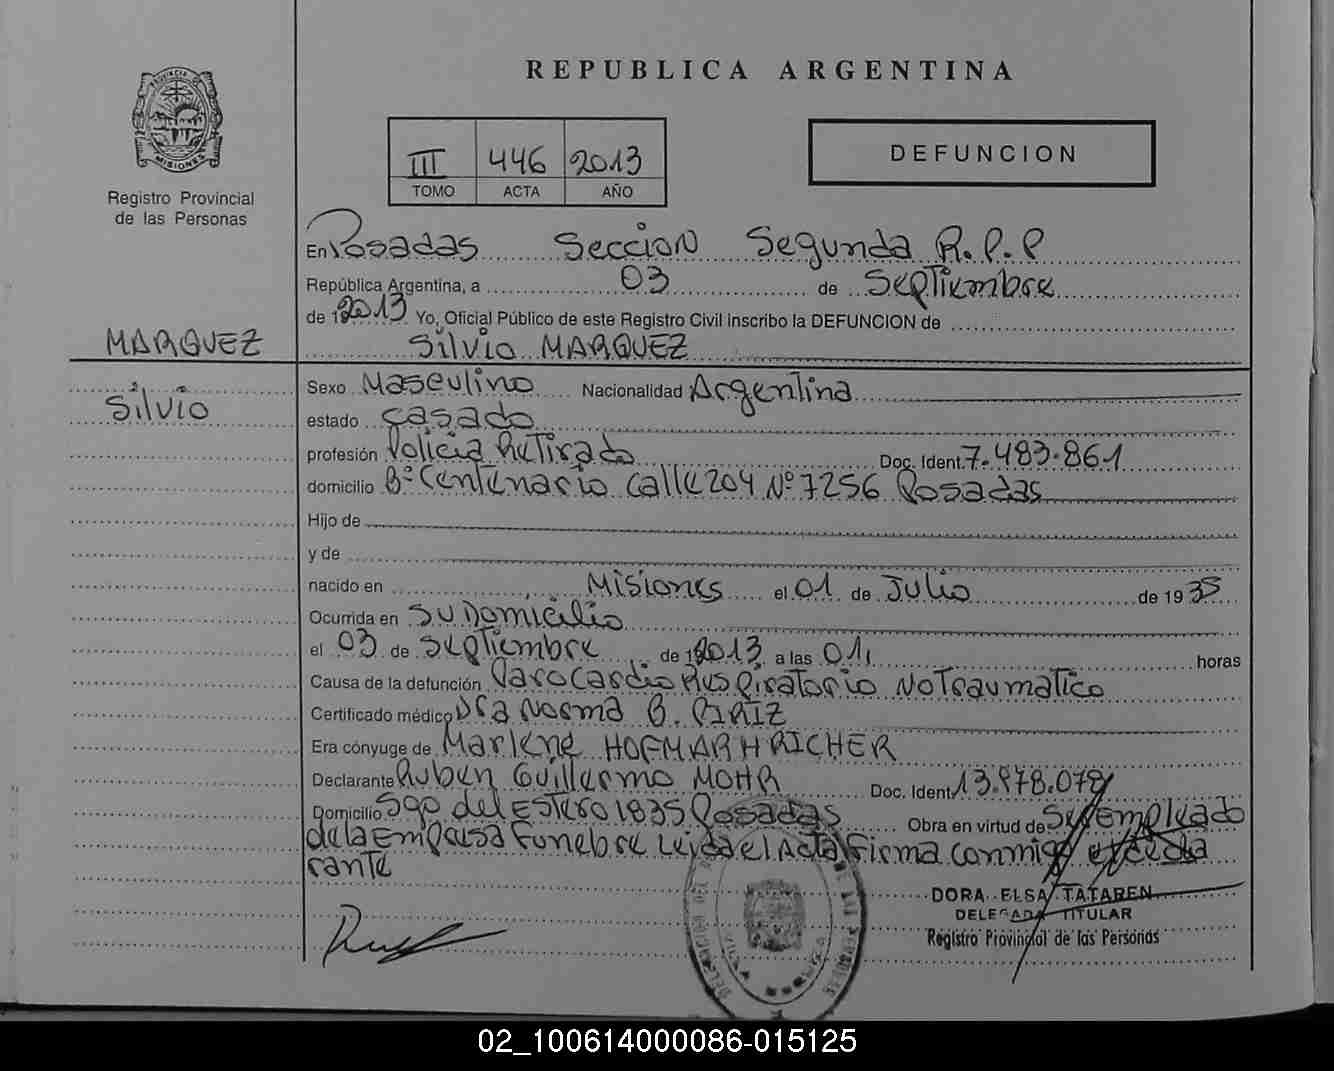 REPUBLICA ARGENTINA
PROVINCIA DE
MISIONES
Registro Provincial
de las Personas
III 446 2013
TOMO ACTA AÑO
DEFUNCION
En Posadas Seccion Segunda R.P.P
República Argentina, a 03 de Septiembre
de 12013 Yo, Oficial Público de este Registro Civil inscribo la DEFUNCION de
MARQUEZ
Silvio MARQUEZ
Silvio
Sexo Masculino Nacionalidad Argentina
estado casado
profesión Policia Retirado Doc. Ident. 7.483.861
domicilio Bº Centenario calle 204 Nº 7256 Posadas
Hijo de
y de
nacido en Misiones el 01 de Julio de 19 35
Ocurrida en su Domicilio
el 03 de Septiembre de 12013 a las 01, horas
Causa de la defunción Parocardio Respiratorio No Traumatico
Certificado médico Dra Norma B. PIRIZ
Era cónyuge de Marlene HOFMAR H RICHER
Declarante Ruben Guillermo MOHR Doc. Ident. 13.978.078
Domicilio Sgo del Estero 1835 Posadas Obra en virtud de Ser Empleado
de la Empresa Funebre Leida el Acta Firma conmigo el decla
rante
DORA ELSA TATAREN
DELEGADA TITULAR
Registro Provincial de las Personas
02_100614000086-015125